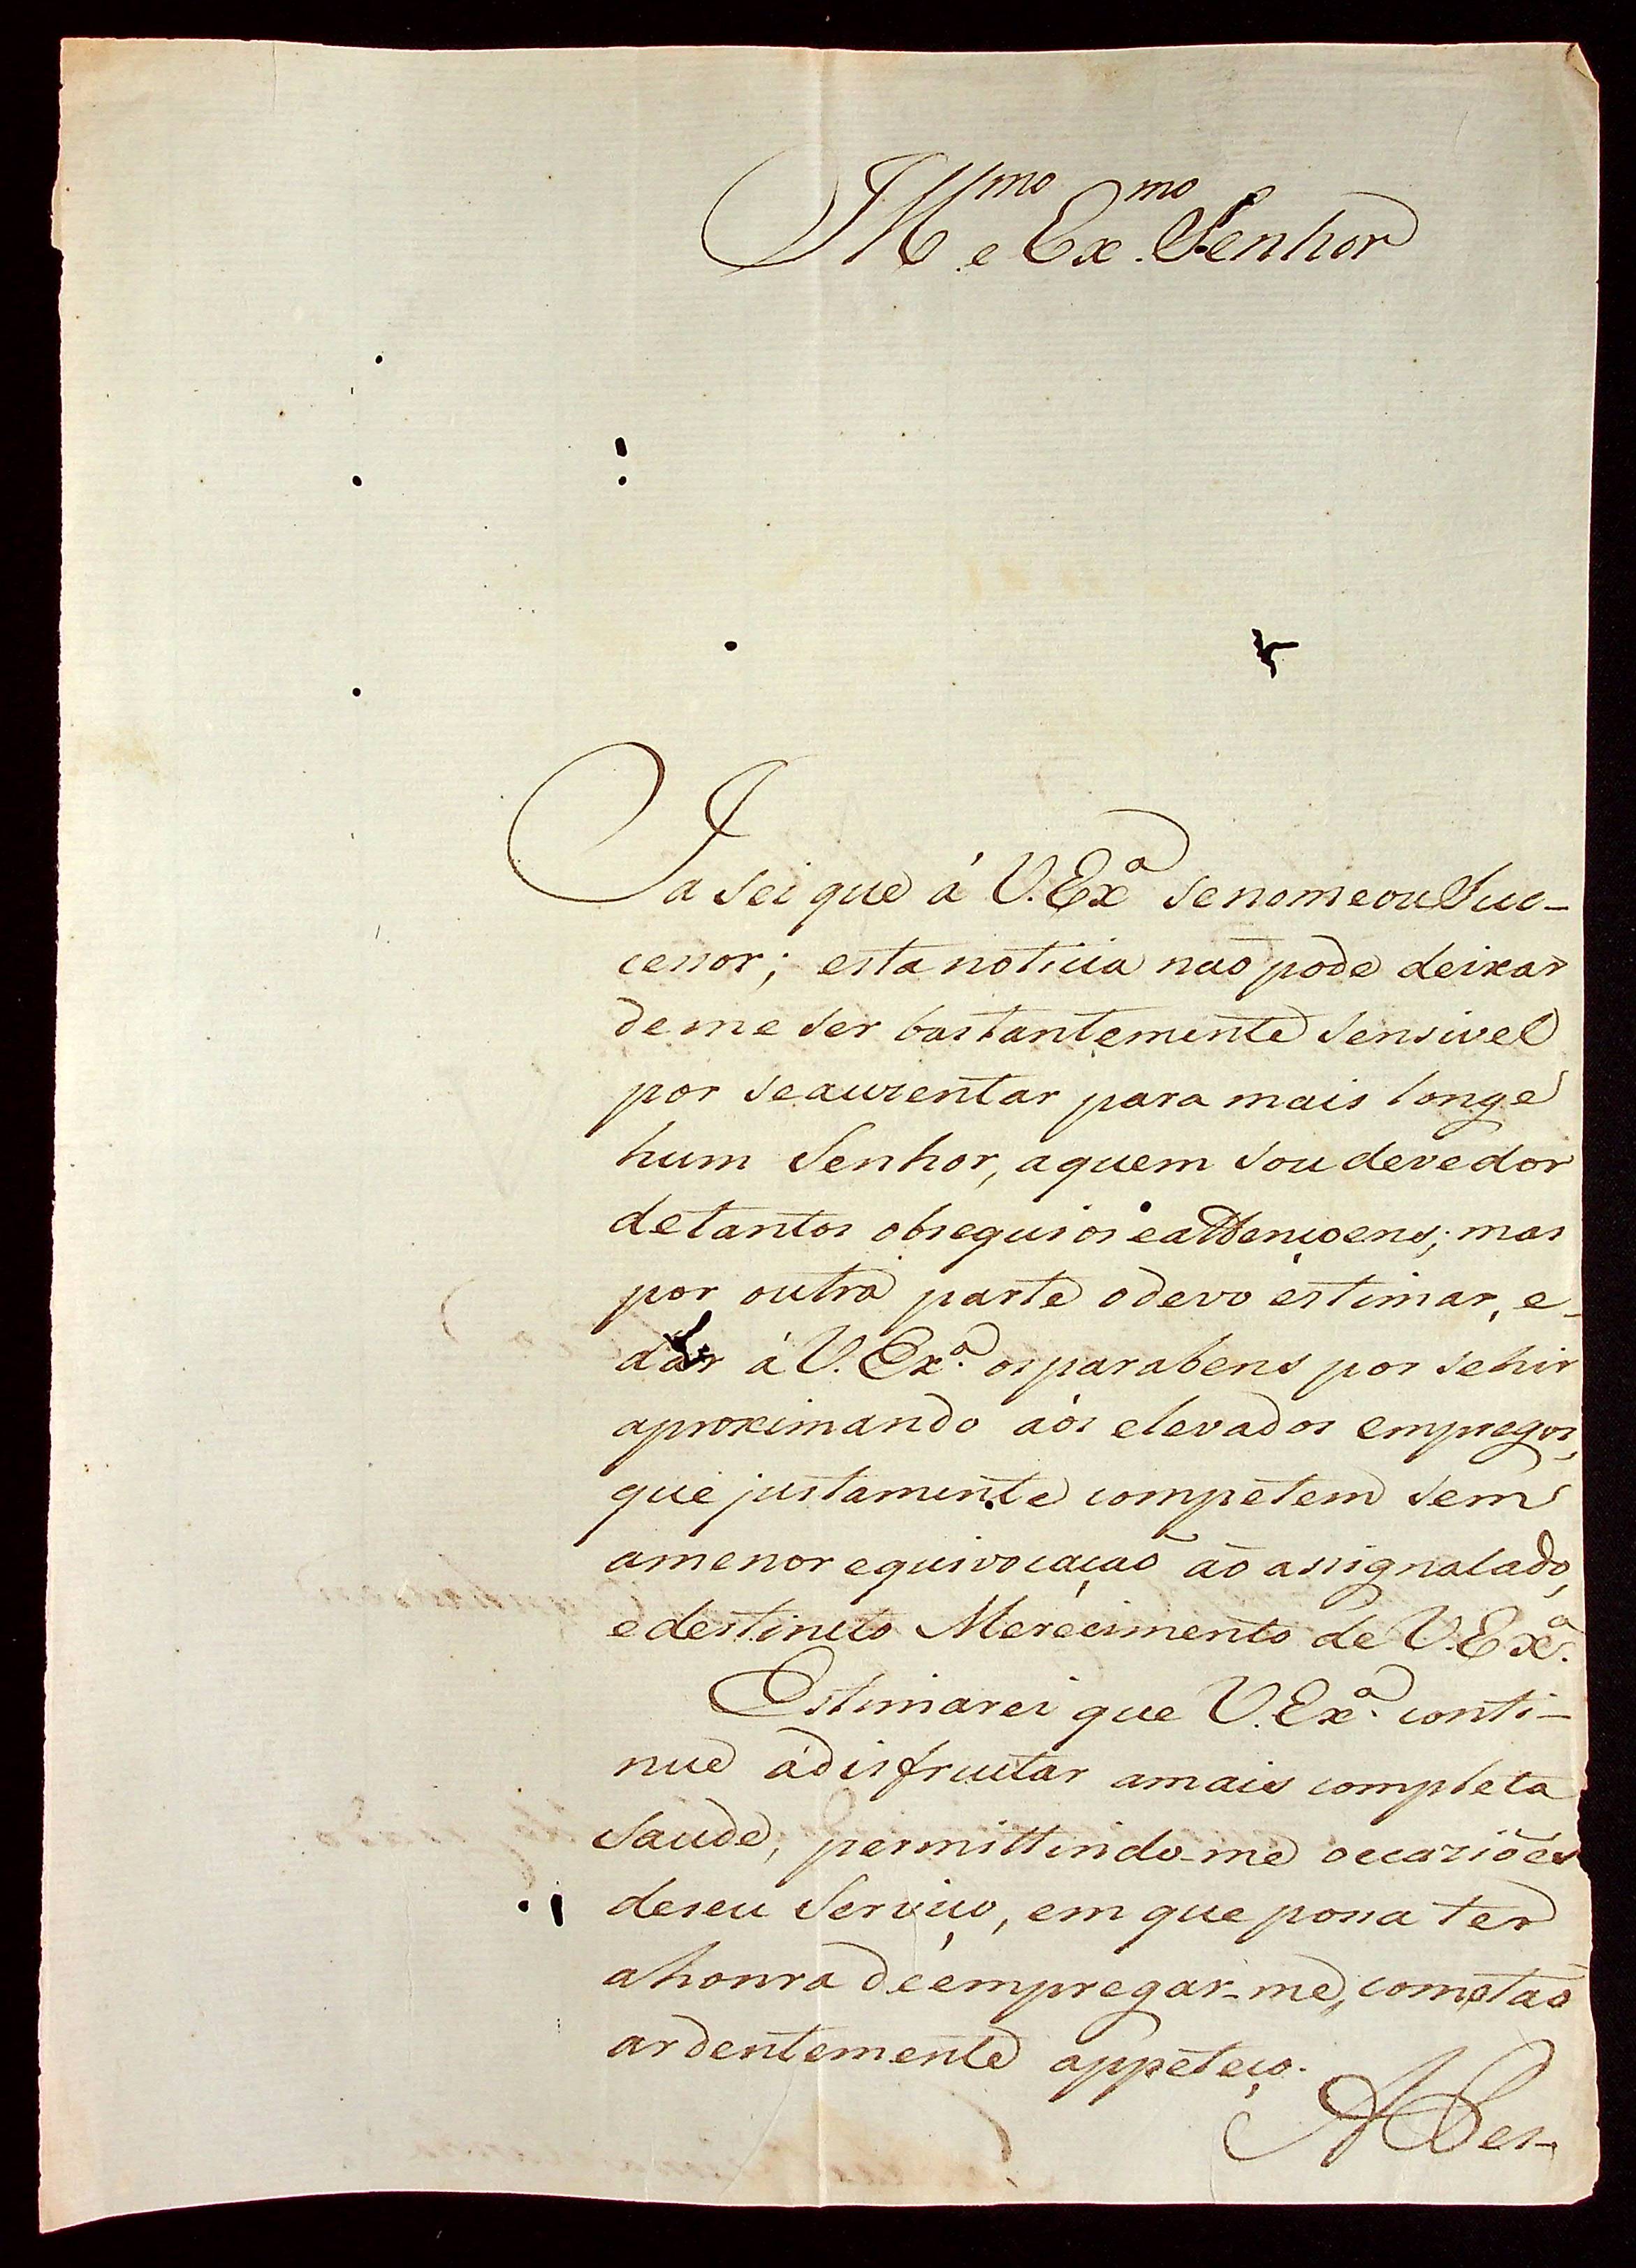 Ill.mo e Ex.mo Senhor
Ja sei que á V. Ex.a se nomeou Suc-
cessor; esta noticia não pode deixar
de me ser bastantemente sensivel
por se auzentar para mais longe
hum Senhor, a quem sou devedor
de tantos obsequios e attençoens; mas
por outra parte o devo estimar, e
dar á V. Ex.a os parabens por se hir
aproximando aós elevados empregos,
que justamente competem sem
a menor equivocação áo assignalado,
e destincto Merecimento de V. Ex.a
Estimarei que V. Ex.a conti-
nue á disfructar a mais completa
saude, permittindo-me occaziões
de seu Serviço, em que possa ter
a honra de empregar-me, como tão
ardentemente appeteço.
A Pes-